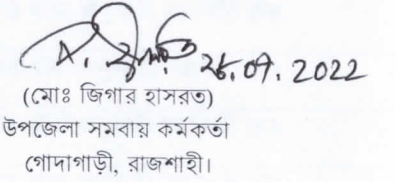 25.07.2022
(মোঃ জিগার হাসরত)
উপজেলা সমবায় কর্মকর্তা
গোদাগাড়ী, রাজশাহী।